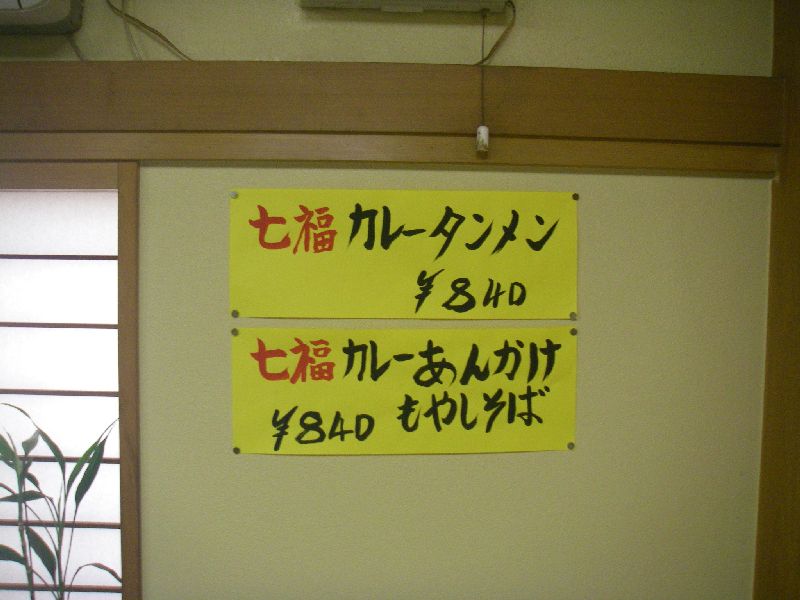 七福カレータンメン
¥840
七福カレーあんかけ
もやしそば
¥840